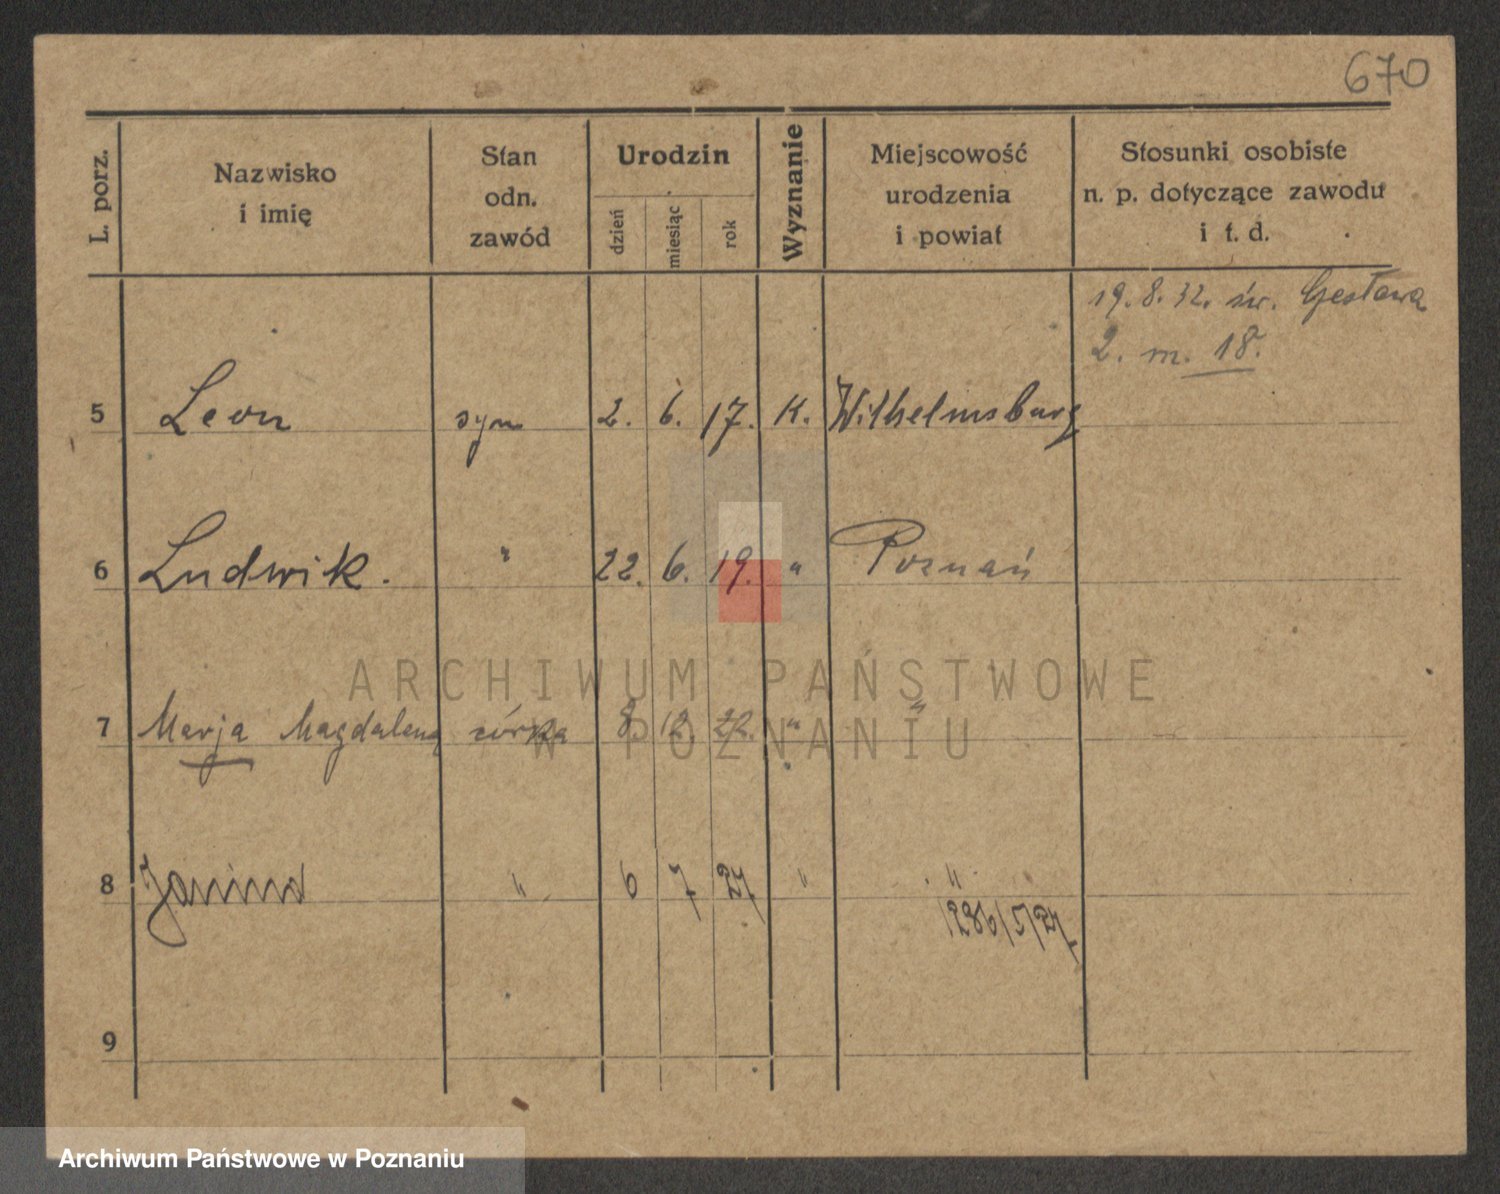 670
L. porz.
Nazwisko
i imię
Stan
odn.
zawód
Urodzin
dzień
miesiąc
rok
Wyznanie
Miejscowość
urodzenia
i powiat
Stosunki osobiste
n. p. dotyczące zawodu
i t. d.
19. 8. 32. św.
2. m. 18.
5 Leon syn 2. 6. 17. K. Wilhelmsburg
6 Ludwik. " 22. 6. 19. " Poznań
7 Marja Magdalena córka 8. 12. 22. " "
8 Janina " 6 7 27 " "
1286/5/27
9
ARCHIWUM PAŃSTWOWE
W POZNANIU
Archiwum Państwowe w Poznaniu